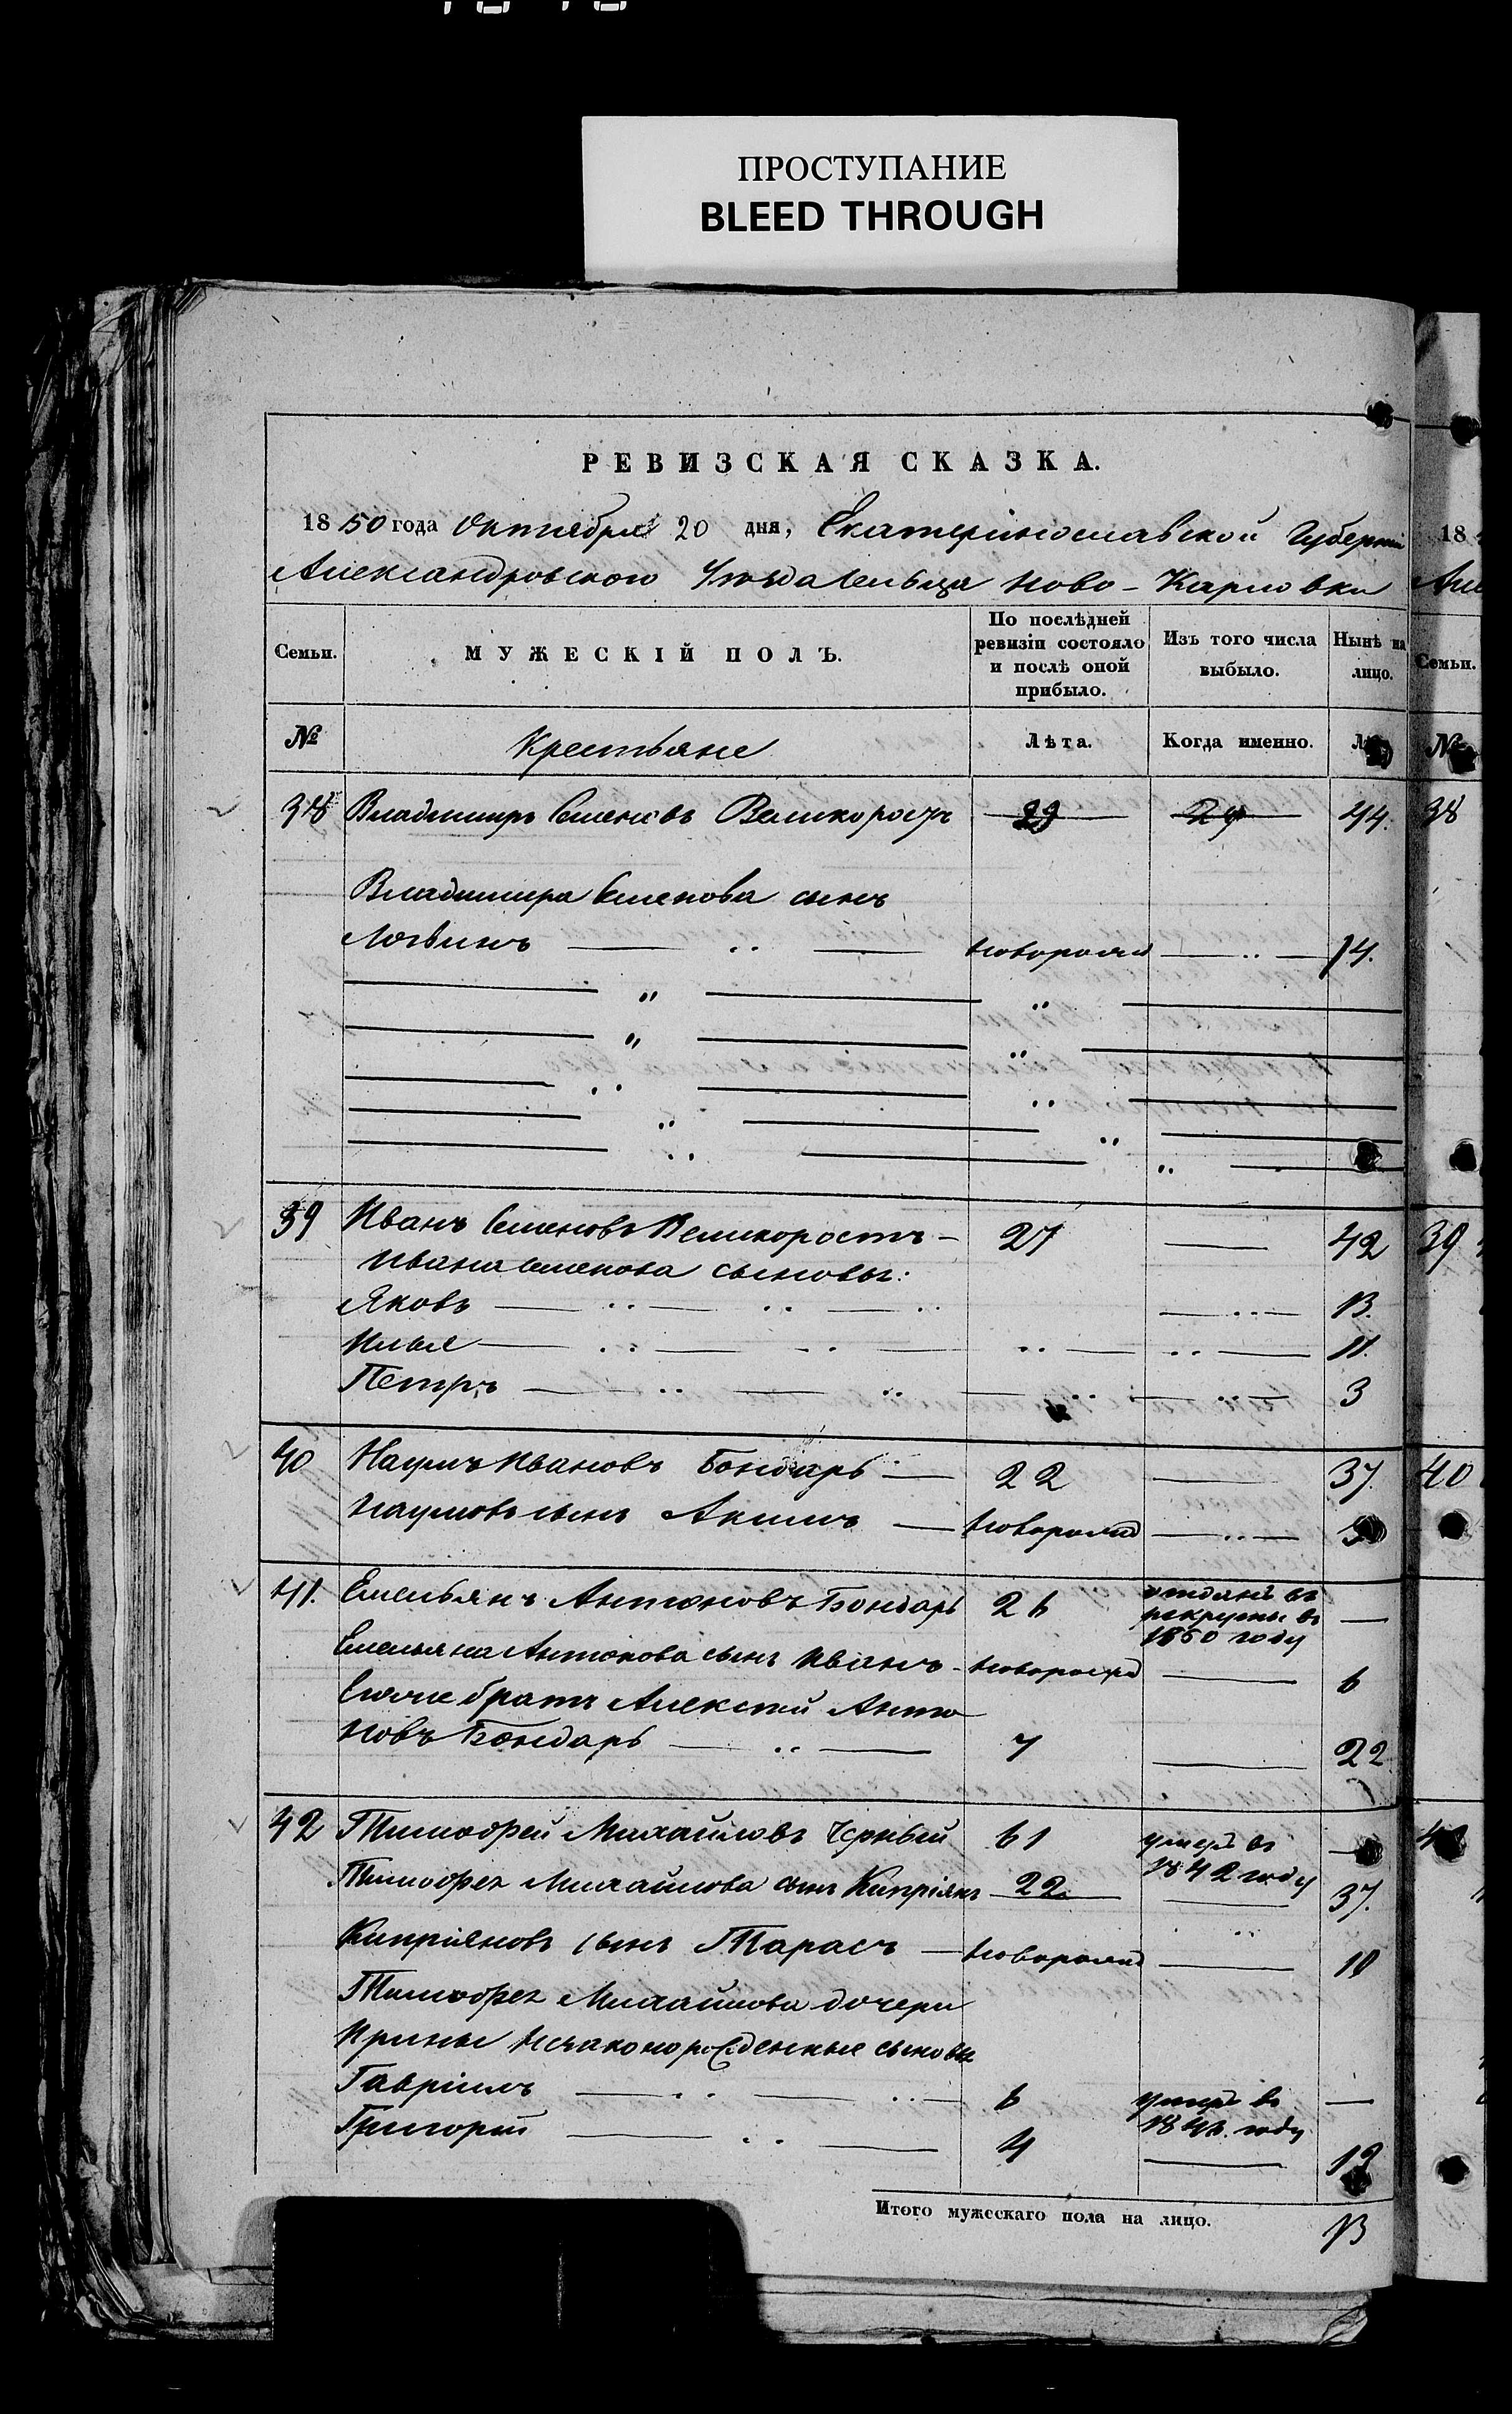 ПРОСТУПАНИЕ
BLEED THROUGH
РЕВИЗСКАЯ СКАЗКА.
1850 года Октября 20 дня, Екатеринославской Губерніи
Александровского Уѣзда Сельца Ново-Карловки
Семьи. МУЖЕСКІЙ ПОЛЪ. По послѣдней ревизіи состояло и послѣ оной прибыло. Изъ того числа выбыло. Нынѣ на лицо.
№ Крестьяне Лѣта. Когда именно.
38 Владимиръ Семеновъ Великоростъ 29 44.
Владимира Семенова сынъ
Логвинъ новорожд 14.
39 Иванъ Семеновъ Великоростъ 27 42
Ивана Семенова сыновьи:
Яковъ 13.
Илья 11.
Петръ 3
40 Наумъ Ивановъ Бондарь 22 37.
Наумовъ сынъ Акимъ новорожд
41. Емельянъ Антоновъ Бондарь 26 отданъ въ рекруты въ 1850 году —
Емельяна Антонова сынъ Иванъ новорожд 6
Его же братъ Алексѣй Анто
новъ Бондарь 7 22
42 Тимофей Михайловъ Черный 61 умеръ въ 1842 году —
Тимофея Михайлова сынъ Кипріянъ 22 37.
Кипріяновъ сынъ Тарасъ новорожд 10
Тимофея Михайлова дочери
Ирины незаконорожденные сыновья
Гавріилъ 6 умеръ въ году —
Григорій 4 19
Итого мужескаго пола на лицо. 13
18
Семьи.
№
38
39
40